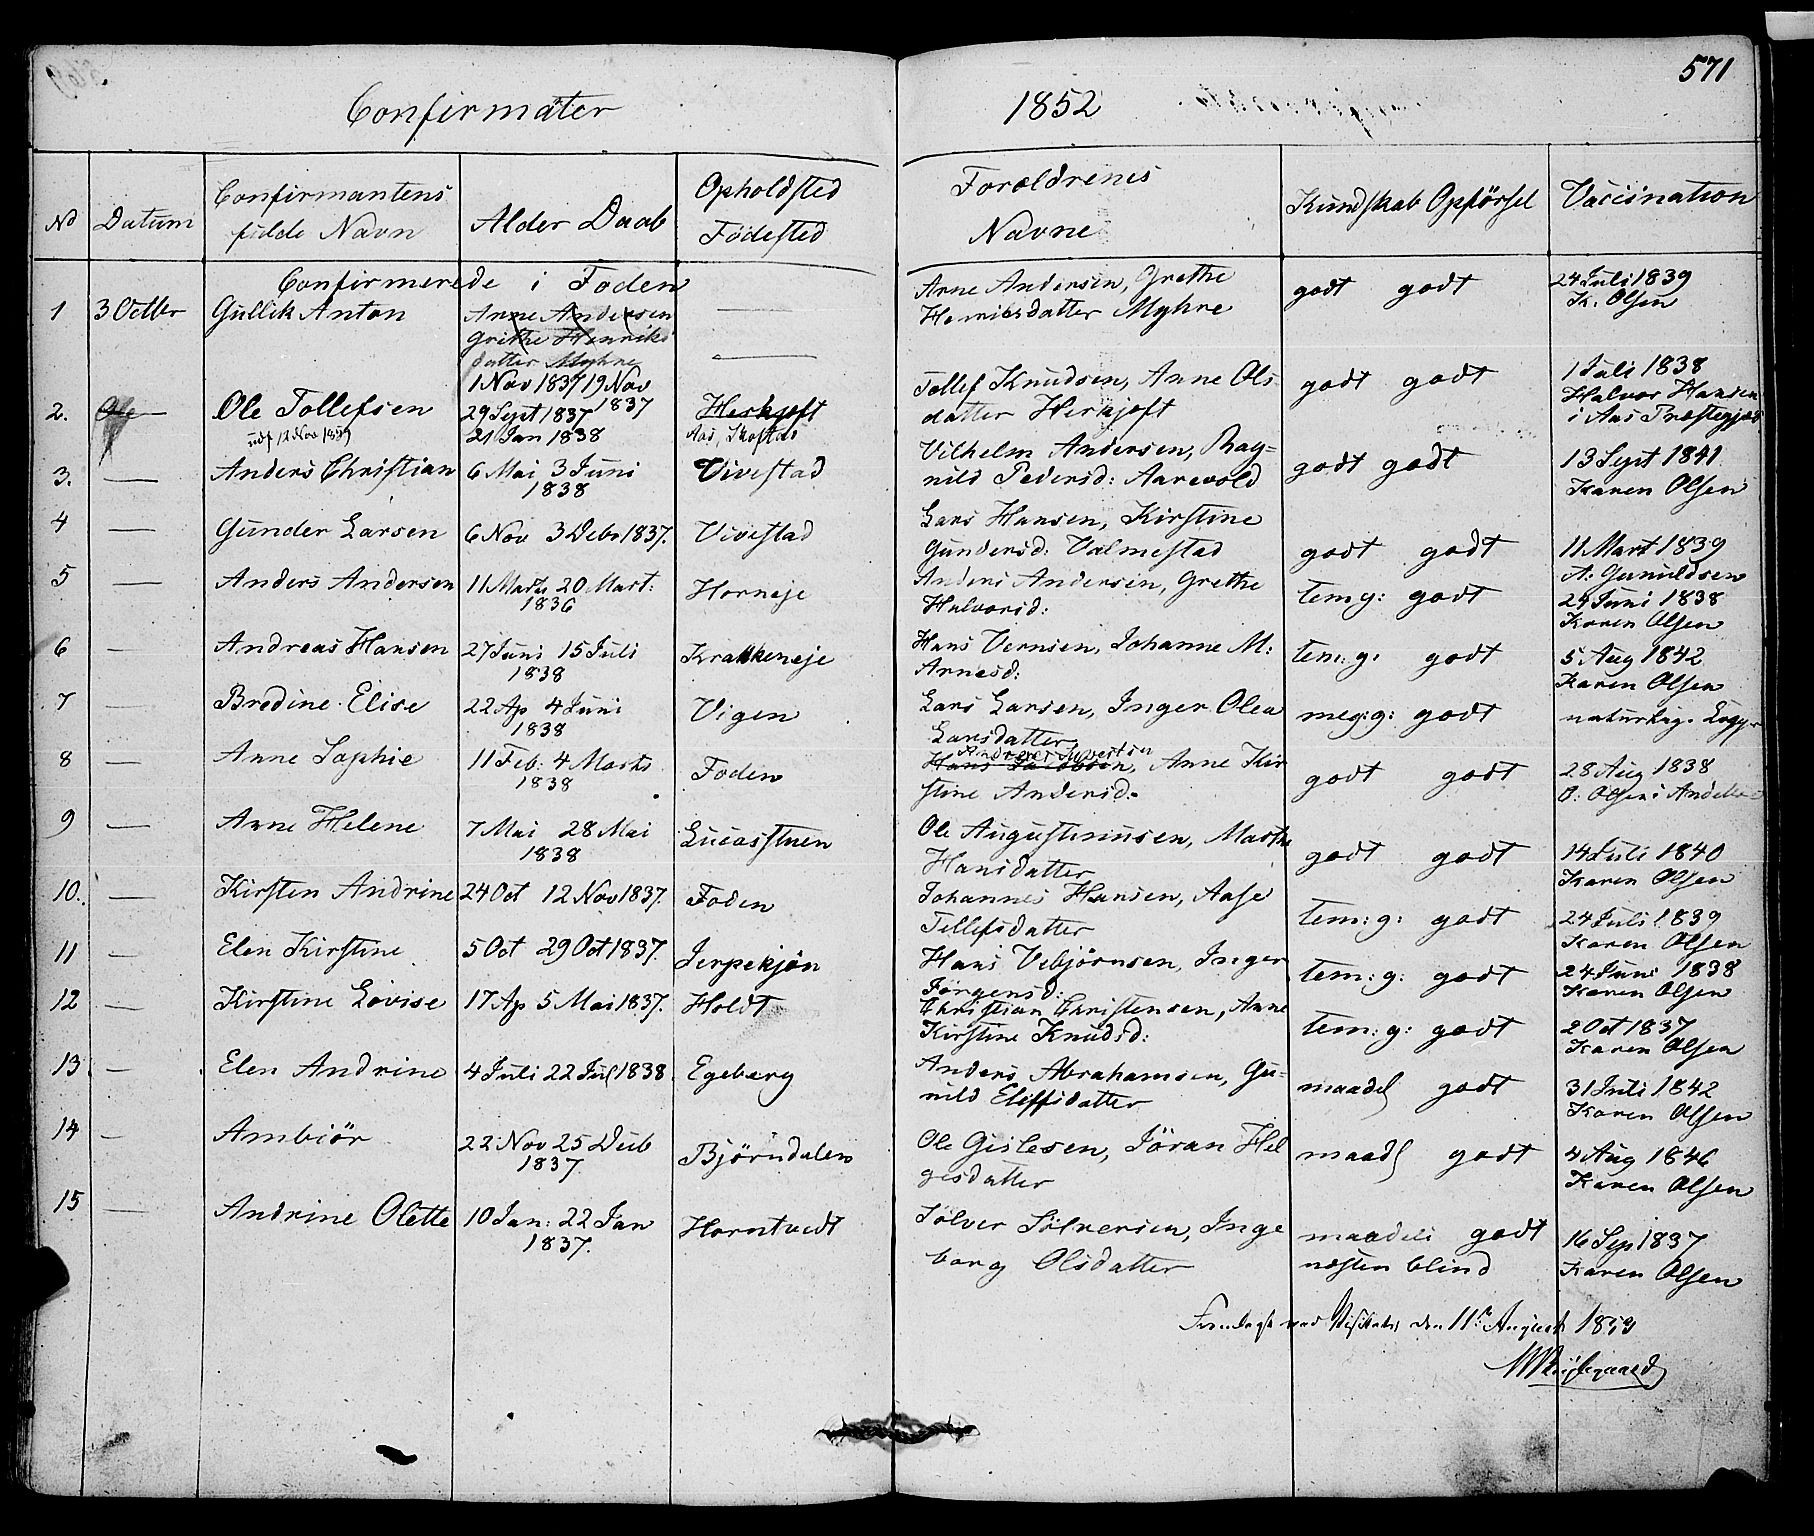 571
Confirmater 1852
No Datum Confirmantens fulde Navn Alder Daab Opholdsted Fødested Forældrenes Navne Kundskab Opførsel Vaccination
Confirmerede i Foden
1 3 Octbr Gullik Anton — Arne Andersen, Grethe godt godt 24 Juli 1839
Arne Andersen Henriksdatter Myhre K. Olsen
Grethe Henriks
datter Myhre —
1 Nov 1837 19 Nov 1837
2. Ole Tollefsen 29 Sept 1837 Herkjøft Tollef Knudsen, Anne Ols godt godt 1 Juli 1838
udf 12 Nov 1859 21 Jan 1838 Aas, datter Herkjøft Halvor Hansen
i Aas Præstegjæld
3. — Anders Christian 6 Mai 3 Juni Vivestad Vilhelm Andersen, Rag= godt godt 13 Sept 1841
1838 nild Pedersd: Aarevold Karen Olsen
4 — Gunder Larsen 6 Nov 3 Debr 1837. Vivestad Lars Hansen, Kirstine godt godt 11 Mart 1839
Gundersd: Valmestad A: Gunuldsen
5 — Anders Andersen 11 Marts 20 Mart: Horneje Anders Andersen, Grethe tem g: godt 24 Juni 1838
1836 Halvorsd: Karen Olsen
6 — Andreas Hansen 27 Juni 15 Juli Krakkeneje Hans Vernsen, Johanne M: tem: g: godt 5 Aug 1842
1838 Arnesd: Karen Olsen
7 — Bredine Elise 22 Ap 4 Juni Vigen Lars Larsen, Inger Olea meg: g: godt naturlig.
1838 Larsdatter
8 — Anne Sophie 11 Feb: 4 Marts Foden Hans Jacobsen, Anne Kir godt godt 28 Aug 1838
1838 stine Andersd: O: Olsen i
9 — Anne Helene 7 Mai 28 Mai Lucasstuen Ole Augustinusen, Marthe godt godt 14 Juli 1840
1838 Hansdatter Karen Olsen
10. — Kirsten Andrine 24 Oct 12 Nov 1837. Foden Johannes Hansen, Aase tem: g: godt 24 Juli 1839
Tellefsdatter Karen Olsen
11 — Elen Kirstine 5 Oct 29 Oct 1837. Jerpekjøn Hans Vebjørnsen, Inger tem: g: godt 24 Juni 1838
Jørgensd: Karen Olsen
12 — Kirstine Lovise 17 Ap 5 Mai 1837. Holdt Christian Christensen, Anne tem: g: godt 2 Oct 1837
Kirstine Knudsd: Karen Olsen
13 — Elen Andrine 4 Juli 22 Jul 1838. Egeberg Anders Abrahamsen, Gu= maadel godt 31 Juli 1842
nild Eliffsdatter Karen Olsen
14 — Ambiør 22 Nov 25 Deb Bjørndalen Ole Gislesen, Jøran Hel maadl godt 4 Aug 1846
1837. gesdatter Karen Olsen
15 — Andrine Olette 10 Jan: 22 Jan Horntvedt Sølver Sølversen, Inge maadeli godt 16 Sep 1837
1837. borg Olsdatter næsten blind Karen Olsen
Fremlagt ved Visitats den 11te August 1853